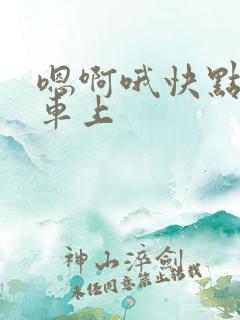 嗯啊哦快點
車上
神山淬劍
未经同意禁止转载